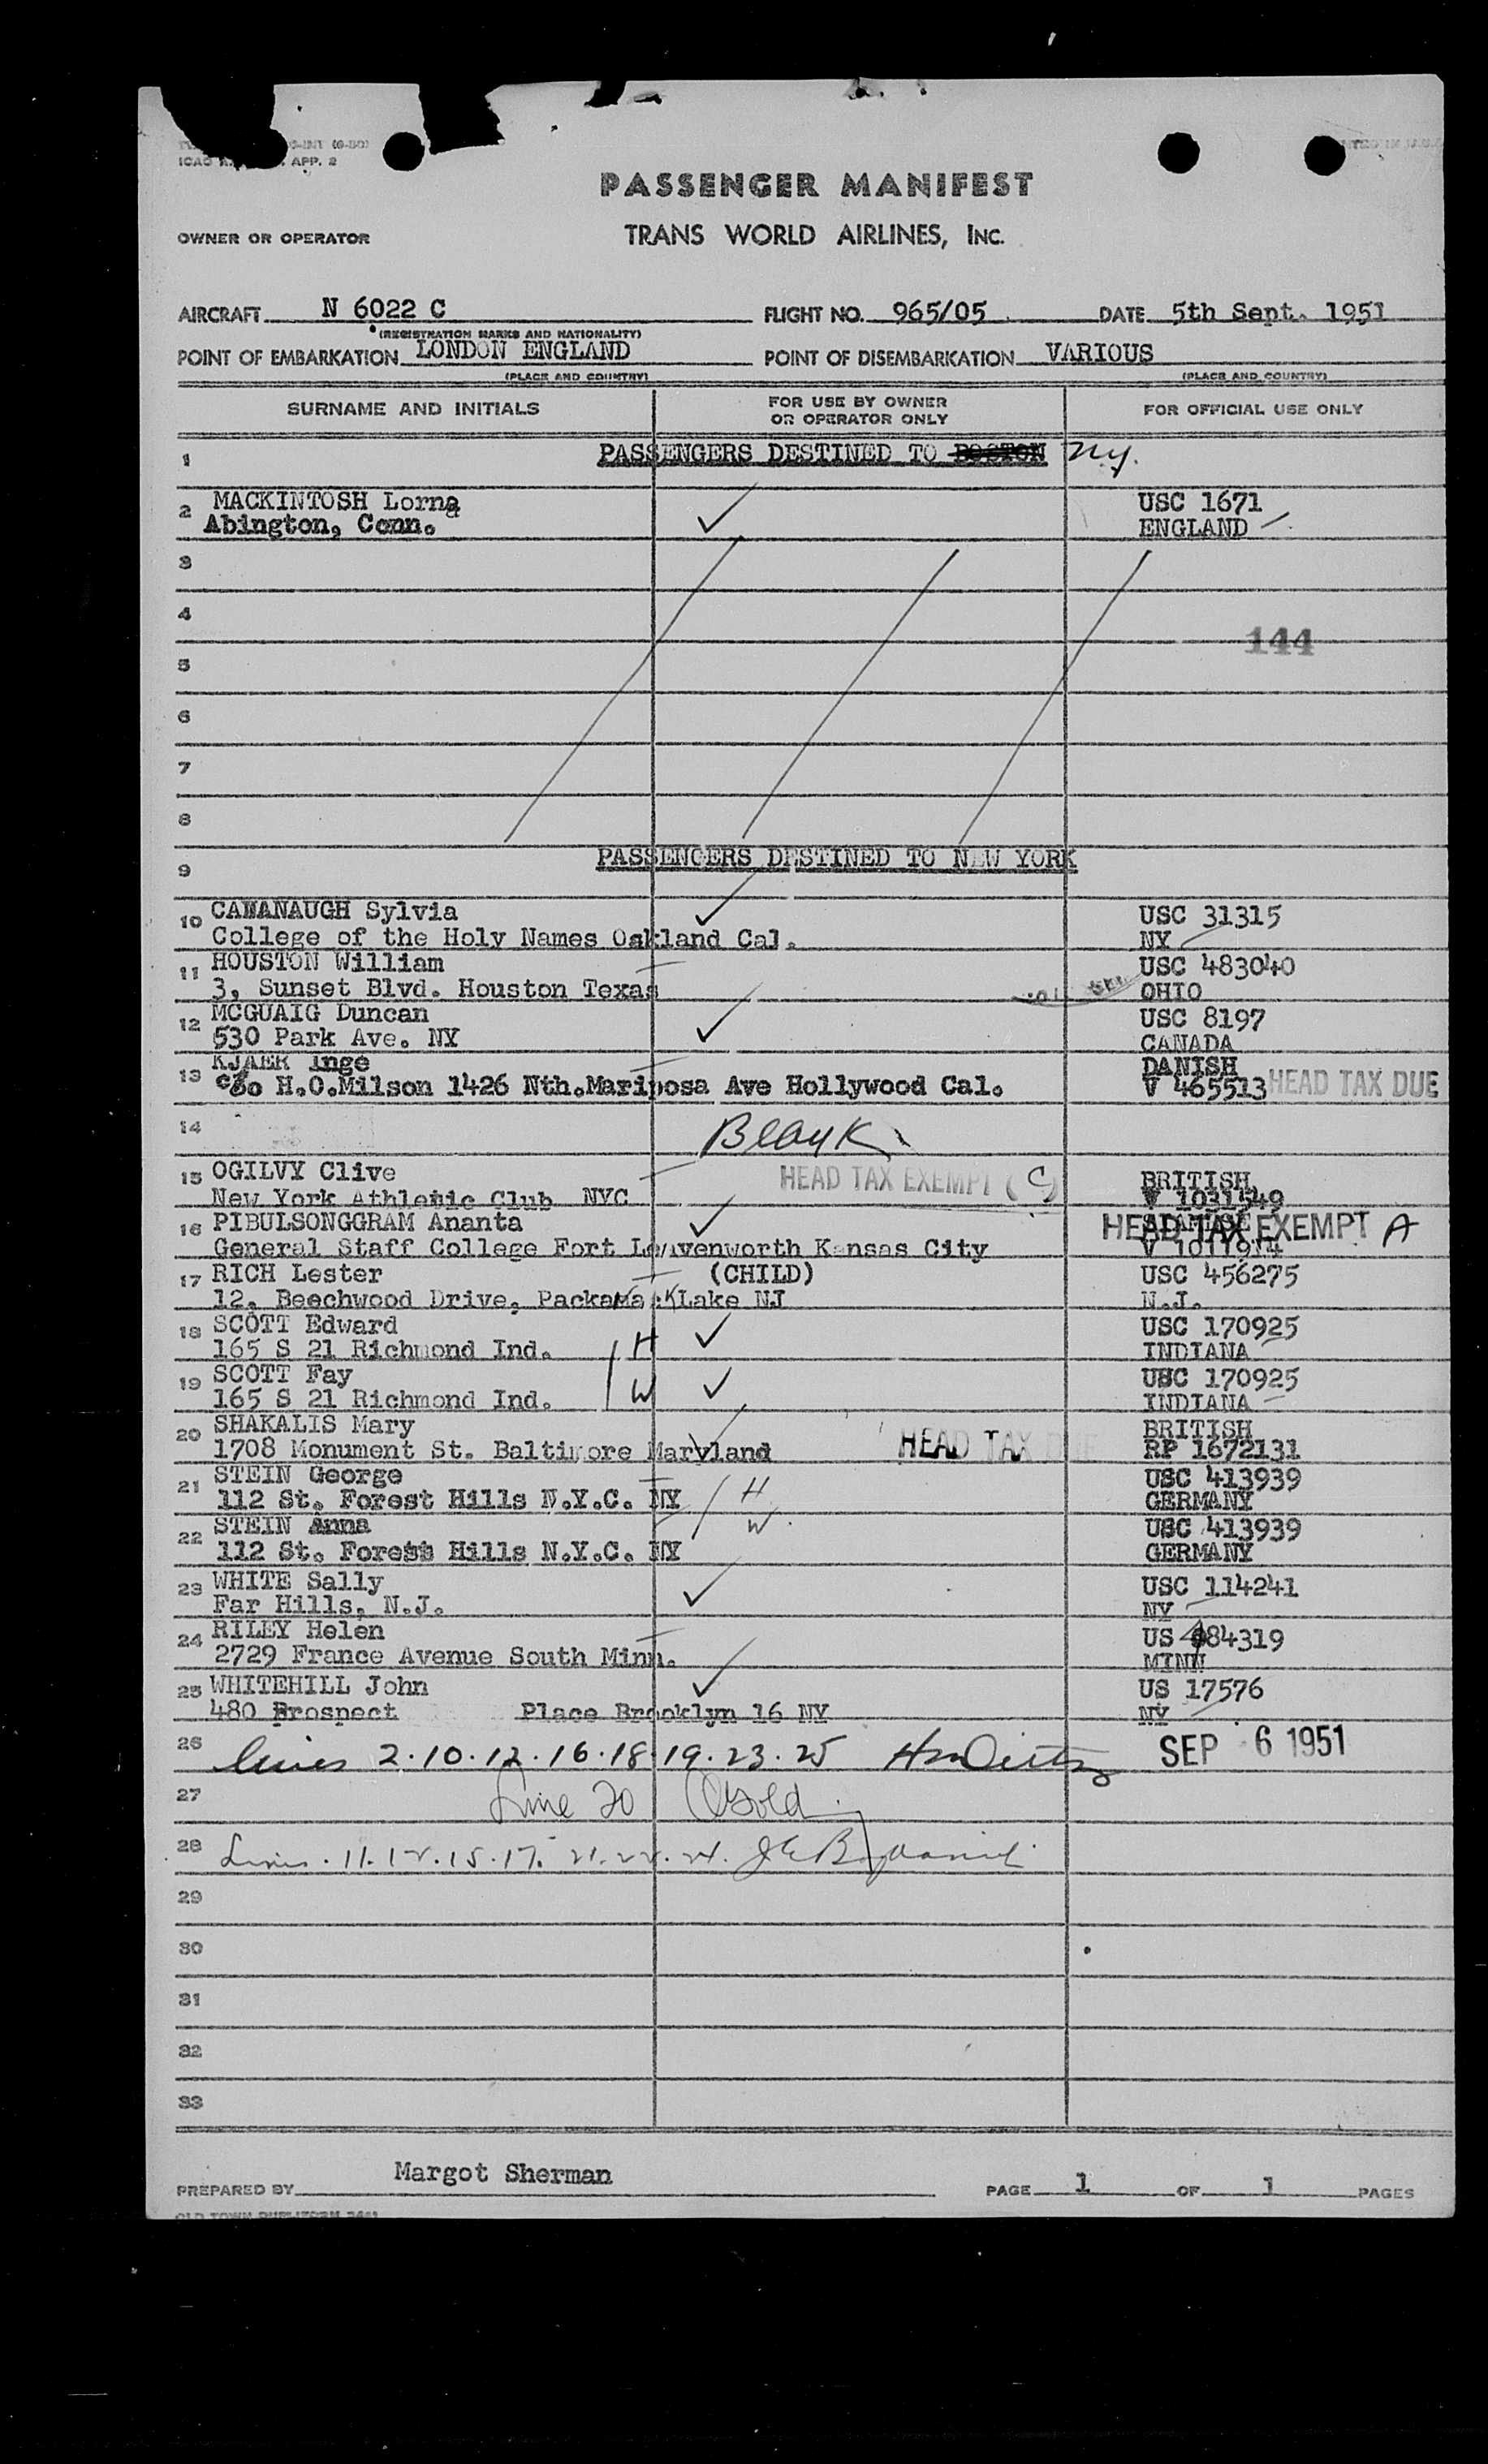 ICAO APP. 2
PASSENGER MANIFEST
OWNER OR OPERATOR TRANS WORLD AIRLINES, INC.
AIRCRAFT N 6022 C FLIGHT NO. 965/05 DATE 5th Sept. 1951
(REGISTRATION MARKS AND NATIONALITY)
POINT OF EMBARKATION LONDON ENGLAND POINT OF DISEMBARKATION VARIOUS
(PLACE AND COUNTRY) (PLACE AND COUNTRY)
SURNAME AND INITIALS FOR USE BY OWNER OR OPERATOR ONLY FOR OFFICIAL USE ONLY
1 PASSENGERS DESTINED TO BOSTON N.Y.
2 MACKINTOSH Lorna USC 1671
Abington, Conn. ENGLAND
3
4
144
5
6
7
8
9 PASSENGERS DESTINED TO NEW YORK
10 CAVANAUGH Sylvia USC 31315
College of the Holy Names Oakland Cal. NY
11 HOUSTON William USC 483040
3, Sunset Blvd. Houston Texas OHIO
12 MCGUAIG Duncan USC 8197
530 Park Ave. NY CANADA
13 KJAER Inge DANISH
c/o H.O.Milson 1426 Nth.Mariposa Ave Hollywood Cal. V 465513 HEAD TAX DUE
14 Blank
15 OGILVY Clive HEAD TAX EXEMPT (C) BRITISH
New York Athletic Club NYC V 1031549
16 PIBULSONGGRAM Ananta SIAMESE HEAD TAX EXEMPT A
General Staff College Fort Leavenworth Kansas City V 1011914
17 RICH Lester (CHILD) USC 456275
12, Beechwood Drive, Packamack Lake NJ N.J.
18 SCOTT Edward H USC 170925
165 S 21 Richmond Ind. INDIANA
19 SCOTT Fay W USC 170925
165 S 21 Richmond Ind. INDIANA
20 SHAKALIS Mary HEAD TAX DUE BRITISH
1708 Monument St. Baltimore Maryland RP 1672131
21 STEIN George H USC 413939
112 St. Forest Hills N.Y.C. NY GERMANY
22 STEIN Anna W USC 413939
112 St. Forest Hills N.Y.C. NY GERMANY
23 WHITE Sally USC 114241
Far Hills, N.J. NY
24 RILEY Helen US 484319
2729 France Avenue South Minn. MINN
25 WHITEHILL John US 17576
480 Prospect Place Brooklyn 16 NY NY
26 lines 2.10.12.16.18.19.23.25 SEP 6 1951
27 Line 20
28 Lines. 11.12.15.17. 21.22.24.
29
30
31
32
33
PREPARED BY Margot Sherman PAGE 1 OF 1 PAGES